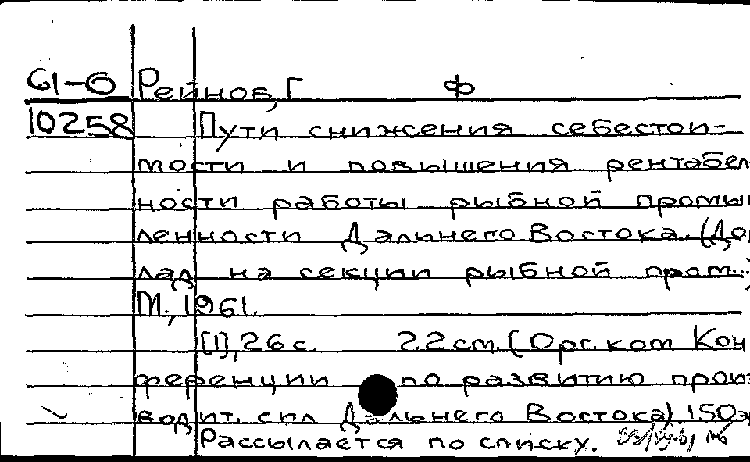 61-6 Рейнов, Г Ф
10258 Пути снижения себестои-
мости и повышения рентабель
ности работы рыбной промыш
ленности Дальнего Востока. (Док
лад на секции рыбной пром..)
М., 1961.
[1], 26 с. 22 см (Орг. ком Кон
ференции по развитию произ
водит. сил Дальнего Востока) 150э
Рассылается по списку.